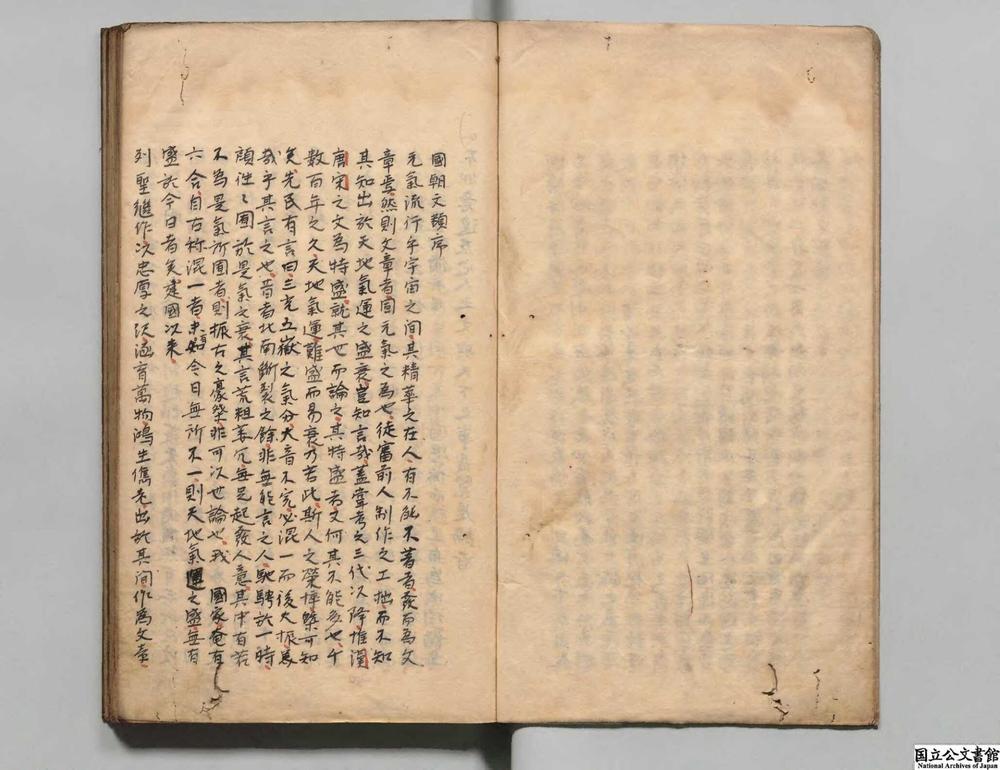 國朝文類序
元氣流行乎宇宙之間其精華之在人有不能不著者發而為文
章焉然則文章者固元氣之為也徒富前人制作之工拙而不知
其知出於天地氣運之盛衰豈知言哉蓋嘗考之三代以降惟漢
唐宋之文為特盛就其世而論之其特盛者又何其不能多也千
數百年之久天地氣運難盛而易衰乃若此斯人之榮悴槩可知
矣先民有言曰三光五嶽之氣分大音不完必混一而後大振美
哉乎其言之也昔者北南斷裂之餘非無能言之人馳騁於一時
顧往〻囿於是氣之衰其言荒粗萎冗無足起發人意其中有若
不為是氣所囿者則振古之豪傑非可以世論也我 國家奄有
六合自古称混一者未始今日無所不一則天地氣運之盛無有
盛於今日者矣建國以来
列聖繼作以忠厚之沢涵育萬物鴻生儁老出於其間作為文章
国立公文書館
National Archives of Japan